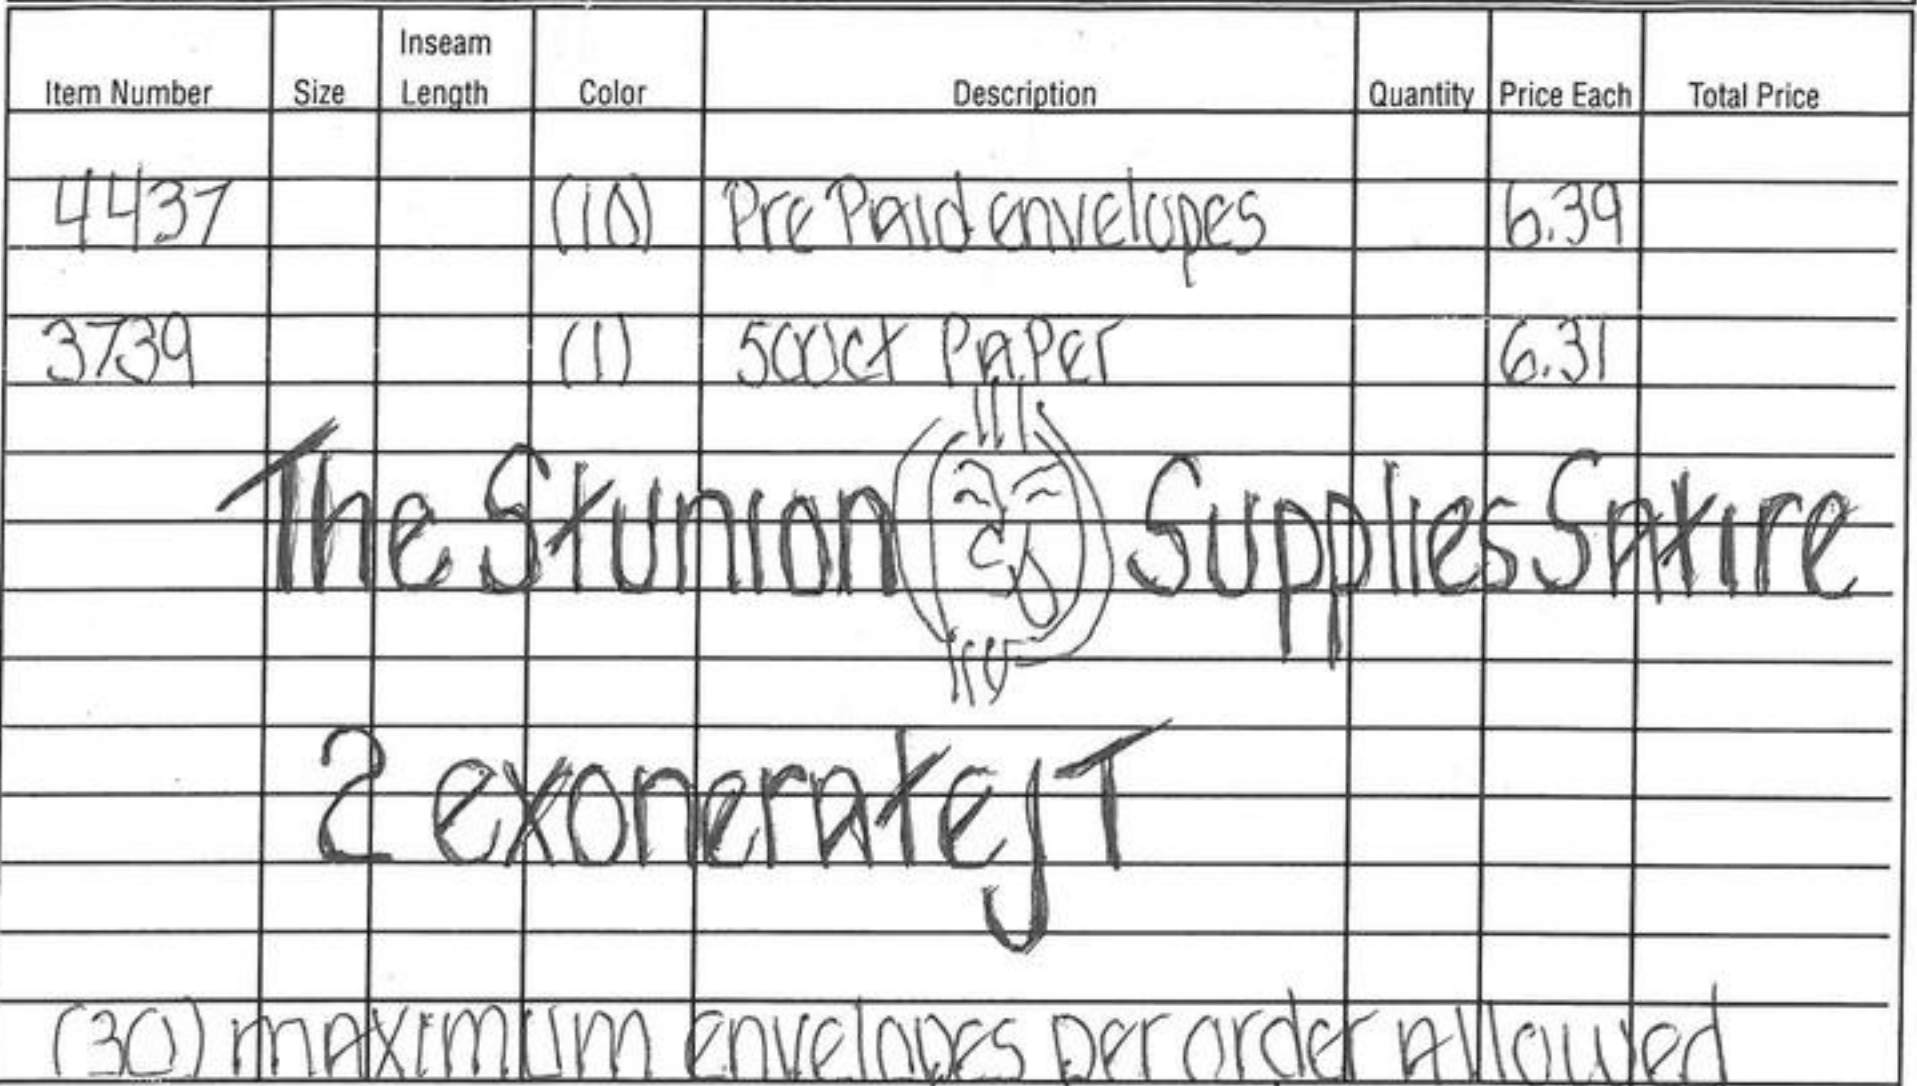 Inseam
Item Number Size Length Color Description Quantity Price Each Total Price
4437 (10) Pre Paid envelopes 6.39
3739 (1) 500ct Paper 6.31
The Stunion Supplies Satire
2 exonerate JT
(30) maximum envelopes per order allowed